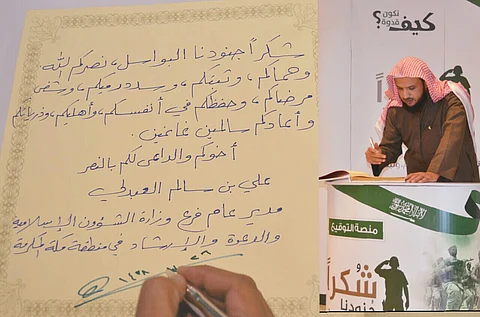 شكراً جنودنا البواسل، نصركم الله،
وحماكم، وثبتكم، وسدد رميكم، وشفى
مرضاكم، وحفظكم في أنفسكم، وأهليكم، وذرياتكم
وأعادكم سالمين غانمين.
أخوكم والداعي لكم بالنصر
علي بن سالم العبدلي
مدير عام فرع وزارة الشؤون الإسلامية
والدعوة والإرشاد في منطقة مكة المكرمة
تكون
كيف قدوة؟
منصة التوقيع
شكراً
جنودنا